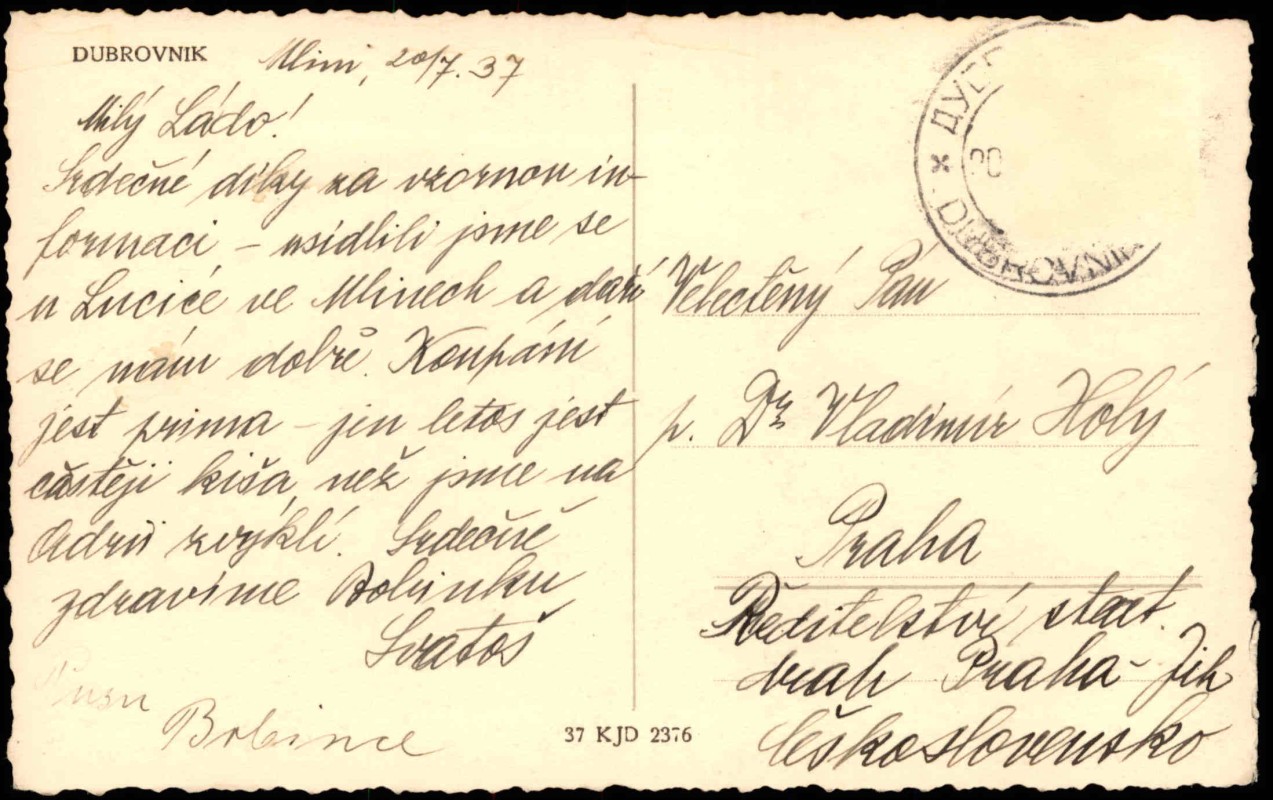 DUBROVNIK
Mlini, 20/7.37
Milý Ládo!
Srdečné díky za vzornou in-
formaci – usídlili jsme se
u Lučiče ve Mlinech a daří
se nám dobře. Koupání
jest prima – jen letos jest
častěji kiša, než jsme na
Adrii zvyklí. Srdečně
zdravíme Bobinku
Svatoš
Bobince
37 KJD 2376
ДУБР
20
DUBROVNIK
Velectěný Pán
p. Dr. Vladimír Holý
Praha
Ředitelství stát.
drah Praha-Jih
Československo